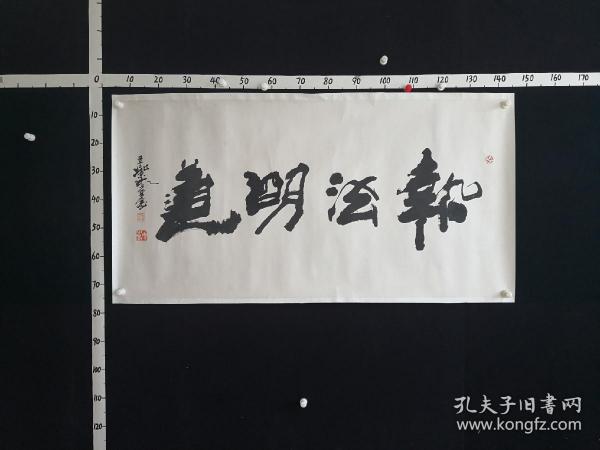 10 20 30 40 50 60 70 80 90 100 110 120 130 140 150 160 170
0
10
20
30
40
50
60
70
80
90
100
110
120
執法明道
孔夫子旧書网
www.kongfz.com